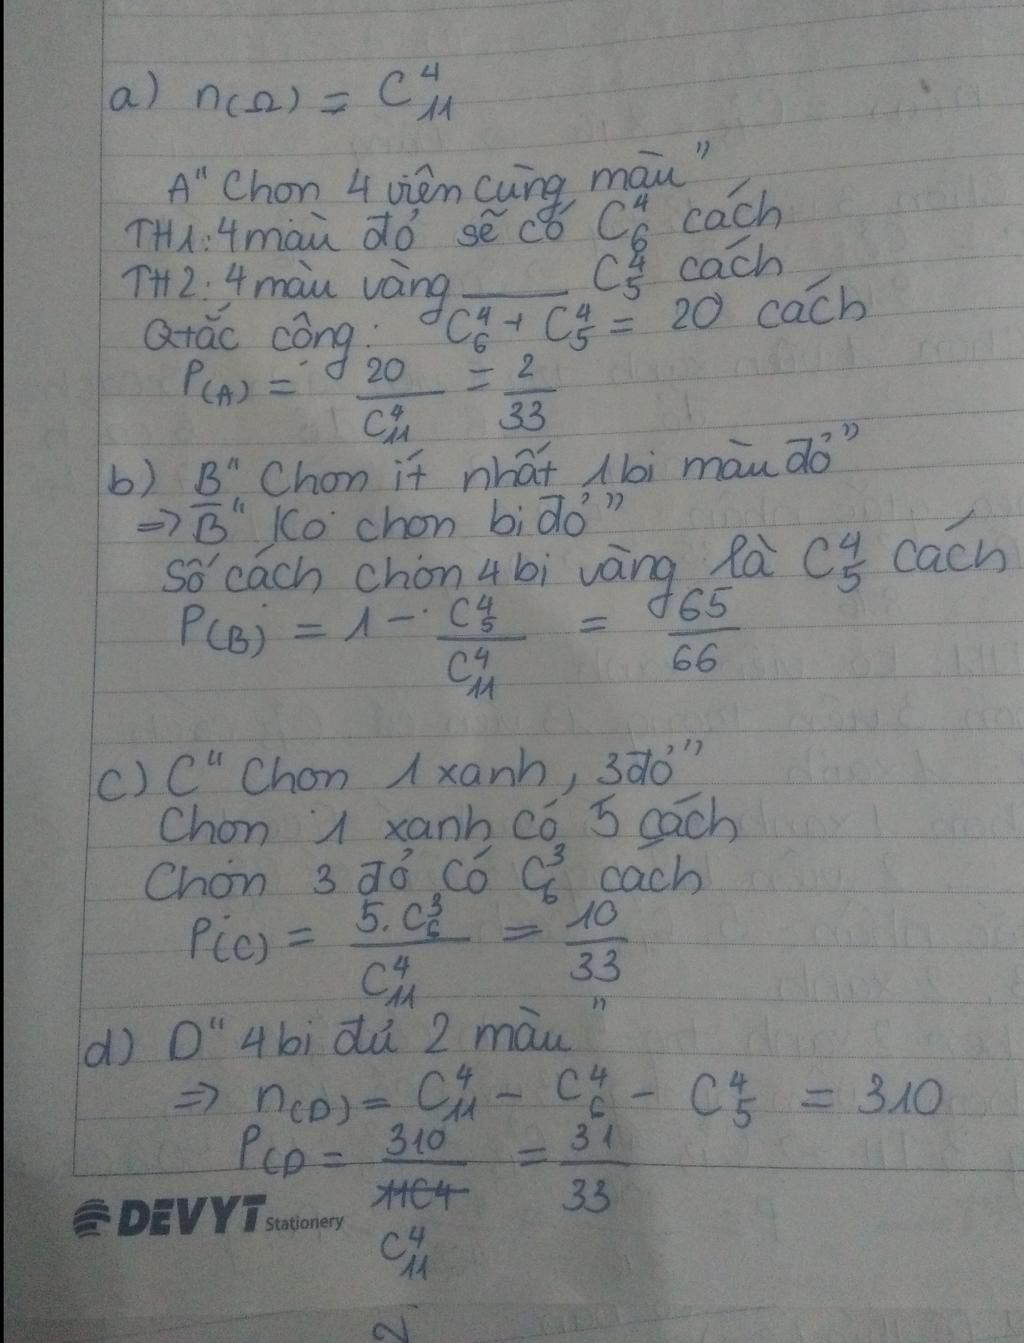 a) n(Ω) = C⁴₁₁
A" Chọn 4 viên cùng màu"
TH1: 4 màu đỏ sẽ có C⁴₆ cách
TH2: 4 màu vàng ___ C⁴₅ cách
Qtắc cộng: C⁴₆ + C⁴₅ = 20 cách
P(A) = 20/C⁴₁₁ = 2/33
b) B" Chọn ít nhất 1 bi màu đỏ"
=> B̅" Ko chọn bi đỏ"
Số cách chọn 4 bi vàng là C⁴₅ cách
P(B) = 1 - C⁴₅/C⁴₁₁ = 65/66
c) C" Chọn 1 xanh, 3 đỏ"
Chọn 1 xanh có 5 cách
Chọn 3 đỏ có C³₆ cach
P(C) = 5.C³₆/C⁴₁₁ = 10/33
d) D" 4 bi đủ 2 màu"
=> n(D) = C⁴₁₁ - C⁴₆ - C⁴₅ = 310
P(D = 310/C⁴₁₁ = 31/33
DEVYT Stationery